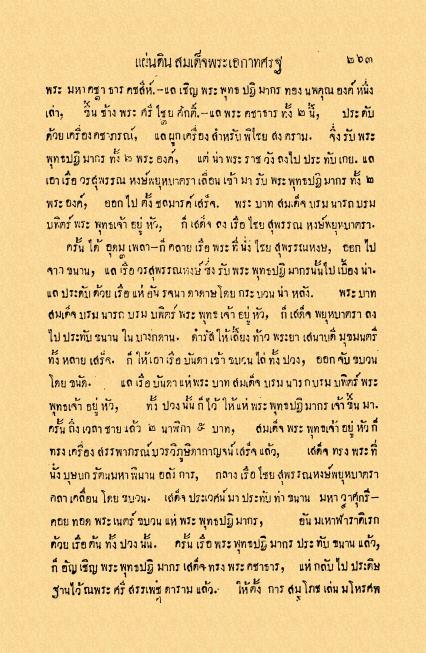 แผ่นดิน สมเด็จพระเอกาทศรฐ ๒๖๓
พระ มหา คชา ธาร คชสีห์.–แล เชิญ พระ พุทธ ปฏิ มากร ทอง นพคุณ องค์ หนึ่ง
เล่า, ขึ้น ช้าง พระ ศรี ไชย ศักดิ์.–แล พระ คชาธาร ทั้ง ๒ นี้, ประ ดับ
ด้วย เครื่อง คชาภรณ์, แล ผูก เครื่อง สำหรับ พิไชย สง คราม. จึ่ง รับ พระ
พุทธปฏิ มากร ทั้ง ๒ พระ องค์, แต่ น่า พระ ราช วัง ลงไป ประ ทับ เกย. แล
เอา เรือ วรสุพรรณ หงษ์พยุหบาตรา เลื่อน เข้า มา รับ พระ พุทธปฏิ มากร ทั้ง ๒
พระ องค์, ออก ไป ตั้ง ชลมารค์ เสร็จ. พระ บาท สมเด็จ บรม นารถ บรม
บพิตร์ พระ พุทธเจ้า อยู่ หัว, ก็ เสด็จ ลง เรือ ไชย สุพรรณ หงษ์พยุหบาตรา.
ครั้น ได้ อุดม เพลา–ก็ คลาย เรือ พระ ที่ นั่ง ไชย สุพรรณหงษ, ออก ไป
จาก ขนาน, แล เรือ วรสุพรรณหงษ์ ซึ่ง รับ พระ พุทธปฏิ มากรนั้นไป เบื้อง น่า.
แล ประดับ ด้วย เรือ แห่ อัน รจนา ดาดาษ โดย กระ บวน น่า หลัง. พระ บาท
สมเด็จ บรม นารถ บรม บพิตร์ พระ พุทธ เจ้า อยู่ หัว, ก็ เสด็จ พยุหบาตรา ลง
ไป ประทับ ขนาน ใน บางกดาน. ดำรัส ให้ เลี้ยง ท้าว พระยา เสนาบดี มุขมนตรี
ทั้ง หลาย เสร็จ. ก็ ให้ เอา เรือ บันดา เข้า ขบวน ได้ ทั้ง ปวง, ออก จับ ขบวน
โดย ขนัด. แล เรือ บันดา แห่ พระ บาท สมเด็จ บรม นารถ บรม บพิตร์ พระ
พุทธเจ้า อยู่ หัว, ทั้ง ปวง นั้น ก็ ไว้ ให้ แห่ พระ พุทธปฏิ มากร เจ้า ขึ้น มา.
ครั้น ถึง เวลา ชาย แล้ว ๒ นาฬิกา ๕ บาท, สมเด็จ พระ พุทธเจ้า อยู่ หัว ก็
ทรง เครื่อง สรรพาภรณ์ บวรวิภูษิตากาญจน์ เสร็จ แล้ว, เสด็จ ทรง พระ ที่
นั่ง บุษบก รัตนมหา พิมาน อลัง การ, กลาง เรือ ไชย สุพรรณหงษ์พยุหบาตรา
คลา เคลื่อน โดย ขบวน. เสด็จ ประเวศน์ มา ประทับ ท่า ขนาน มหา วาสุกรี–
คอย ทอด พระเนตร์ ขบวน แห่ พระ พุทธปฏิ มากร, อัน มหาพาราดิเรก
ด้วย เรือ คัน ทั้ง ปวง นั้น. ครั้น เรือ พระ พุทธปฏิ มากร ประ ทับ ขนาน แล้ว,
ก็ อัญ เชิญ พระ พุทธปฏิ มากร เสด็จ ทรง พระ คชาธาร, แห่ กลับ ไป ประดิษ
ฐานไว้ ณพระ ศรี สรรเพชฎ ดาราม แล้ว. ให้ ตั้ง การ สมโภช เล่น มโหรศพ